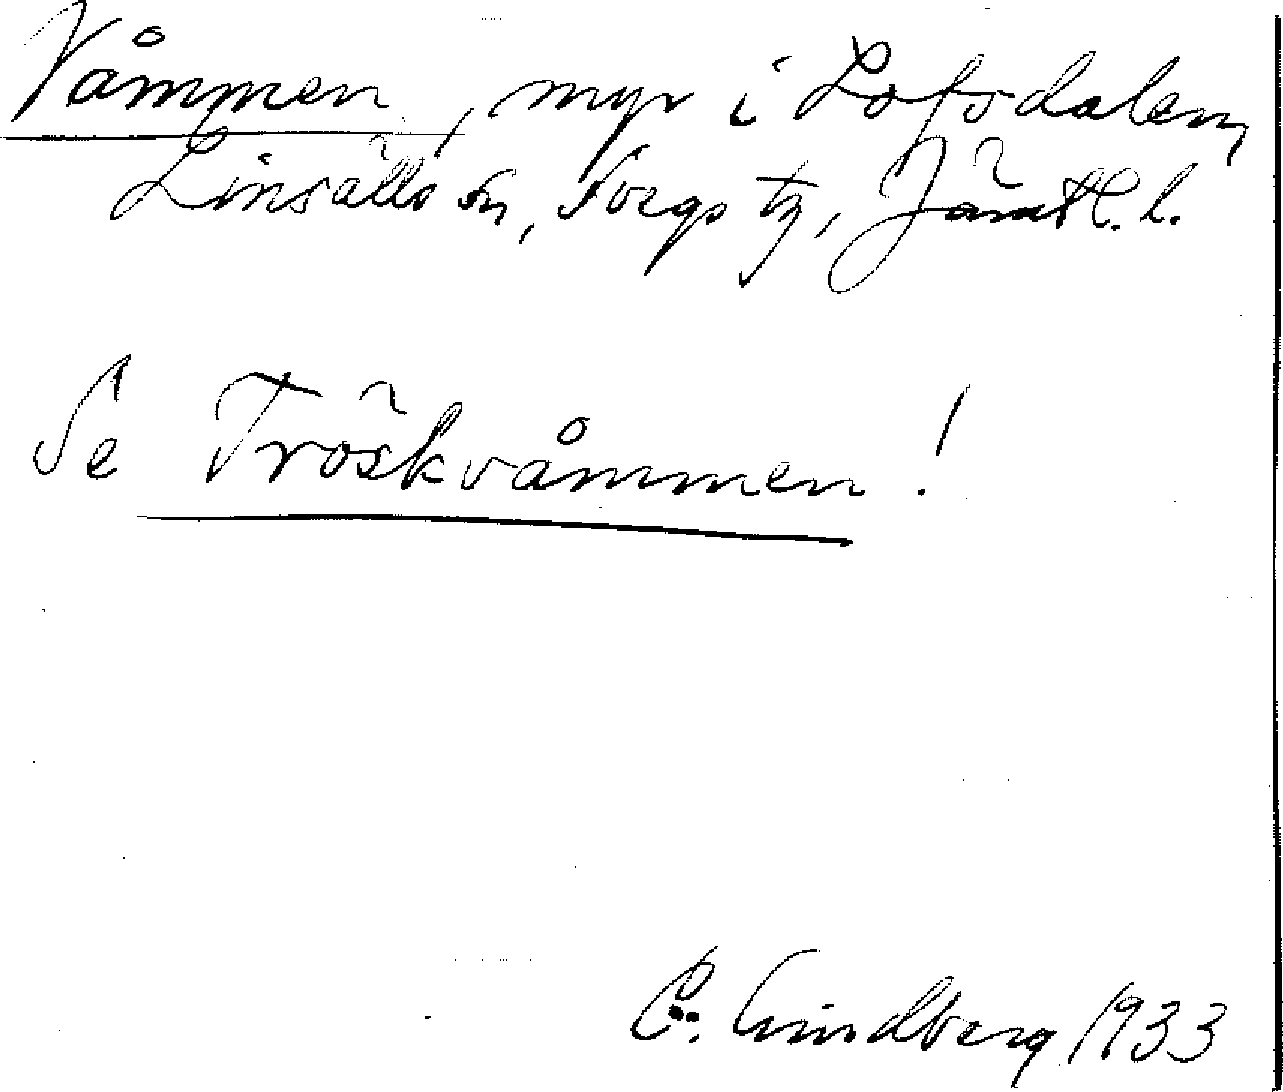 Våmmen, myr i Lofsdalen,
Linsälls sn, Svegs tg, Jämtl. l.
Se Tröskvåmmen!
E. Lindberg 1933